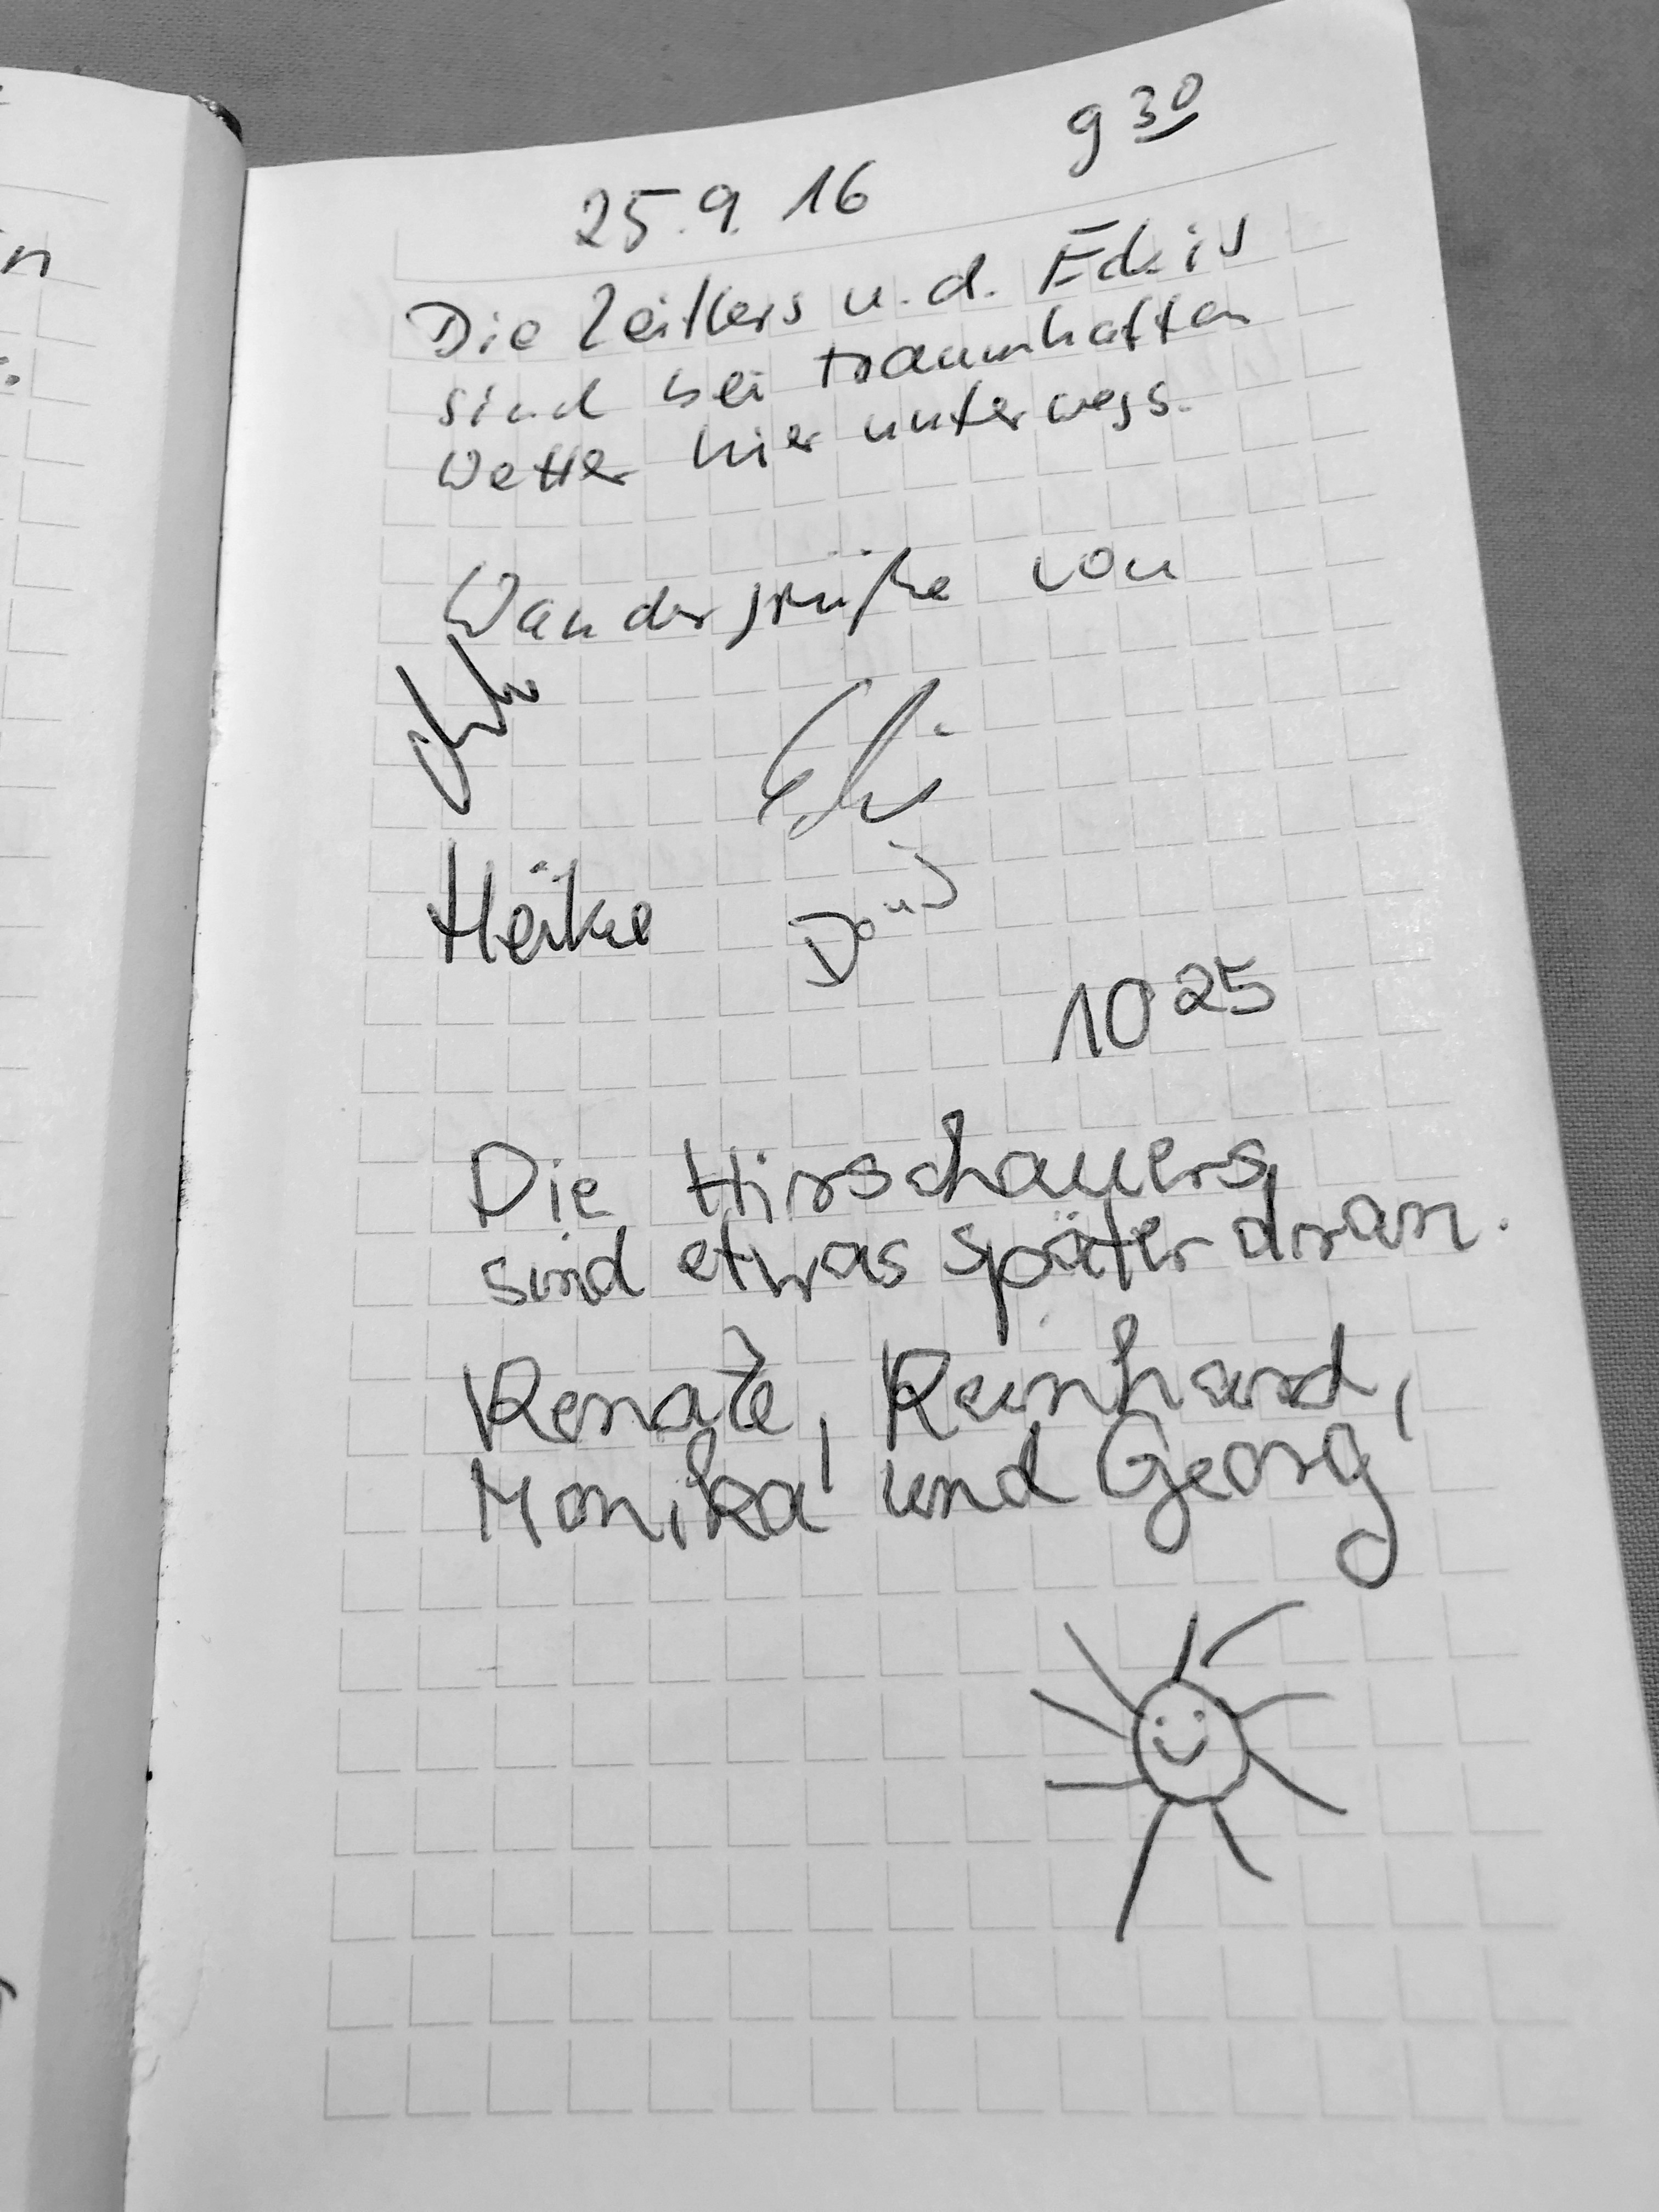 25.9.16 9 30
Die Zeitlers u. d. Eckis
sind bei traumhaften
Wetter hier unterwegs.
Wandergrüße von
Heike
10 25
Die Hirschauers
sind etwas später dran.
Renate, Reinhard,
Monika und Georg